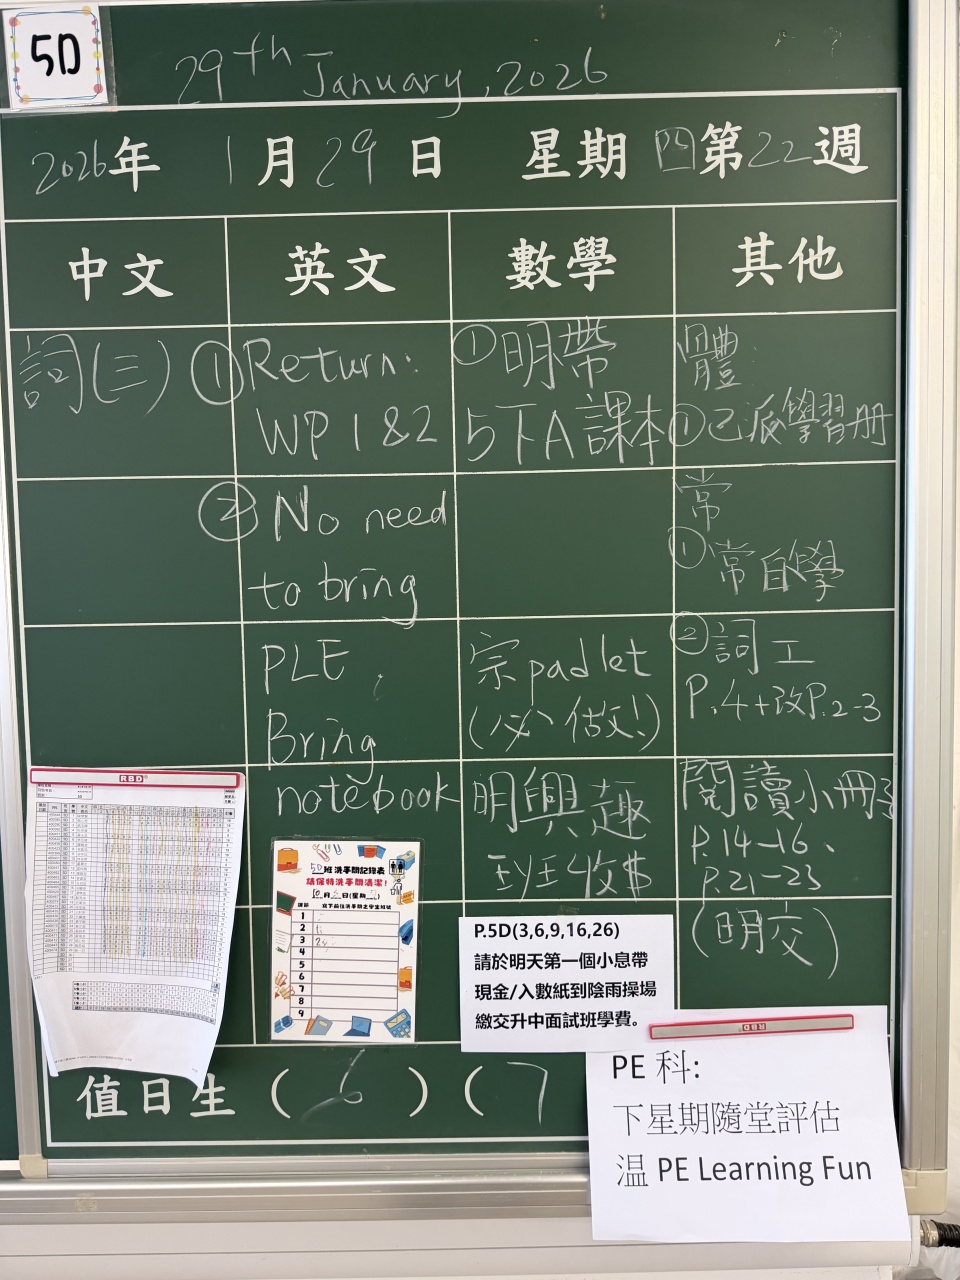 5D
29th January, 2026
2026年 1月29日 星期四第22週
中文
英文
數學
其他
詞(三)
① Return:
WP 1 & 2
② No need
to bring
PLE,
Bring
notebook
①明帶
5下A課本
宗padlet
(必做!)
明興趣
班收$
體:
①已派學習册
常
①常自學
②詞工
P.4+改P.2-3
閱讀小冊子
P.14-16、
P.21-23
(明交)
RBD
5D班洗手間記錄表
請保持洗手間清潔!
月 日(星期 )
課節 寫下前往洗手間之學生班號
1
2
3
4
5
6
7
8
9
P.5D(3,6,9,16,26)
請於明天第一個小息帶
現金/入數紙到陰雨操場
繳交升中面試班學費。
RBD
PE 科:
下星期隨堂評估
温 PE Learning Fun
值日生 ( 6 ) ( 7